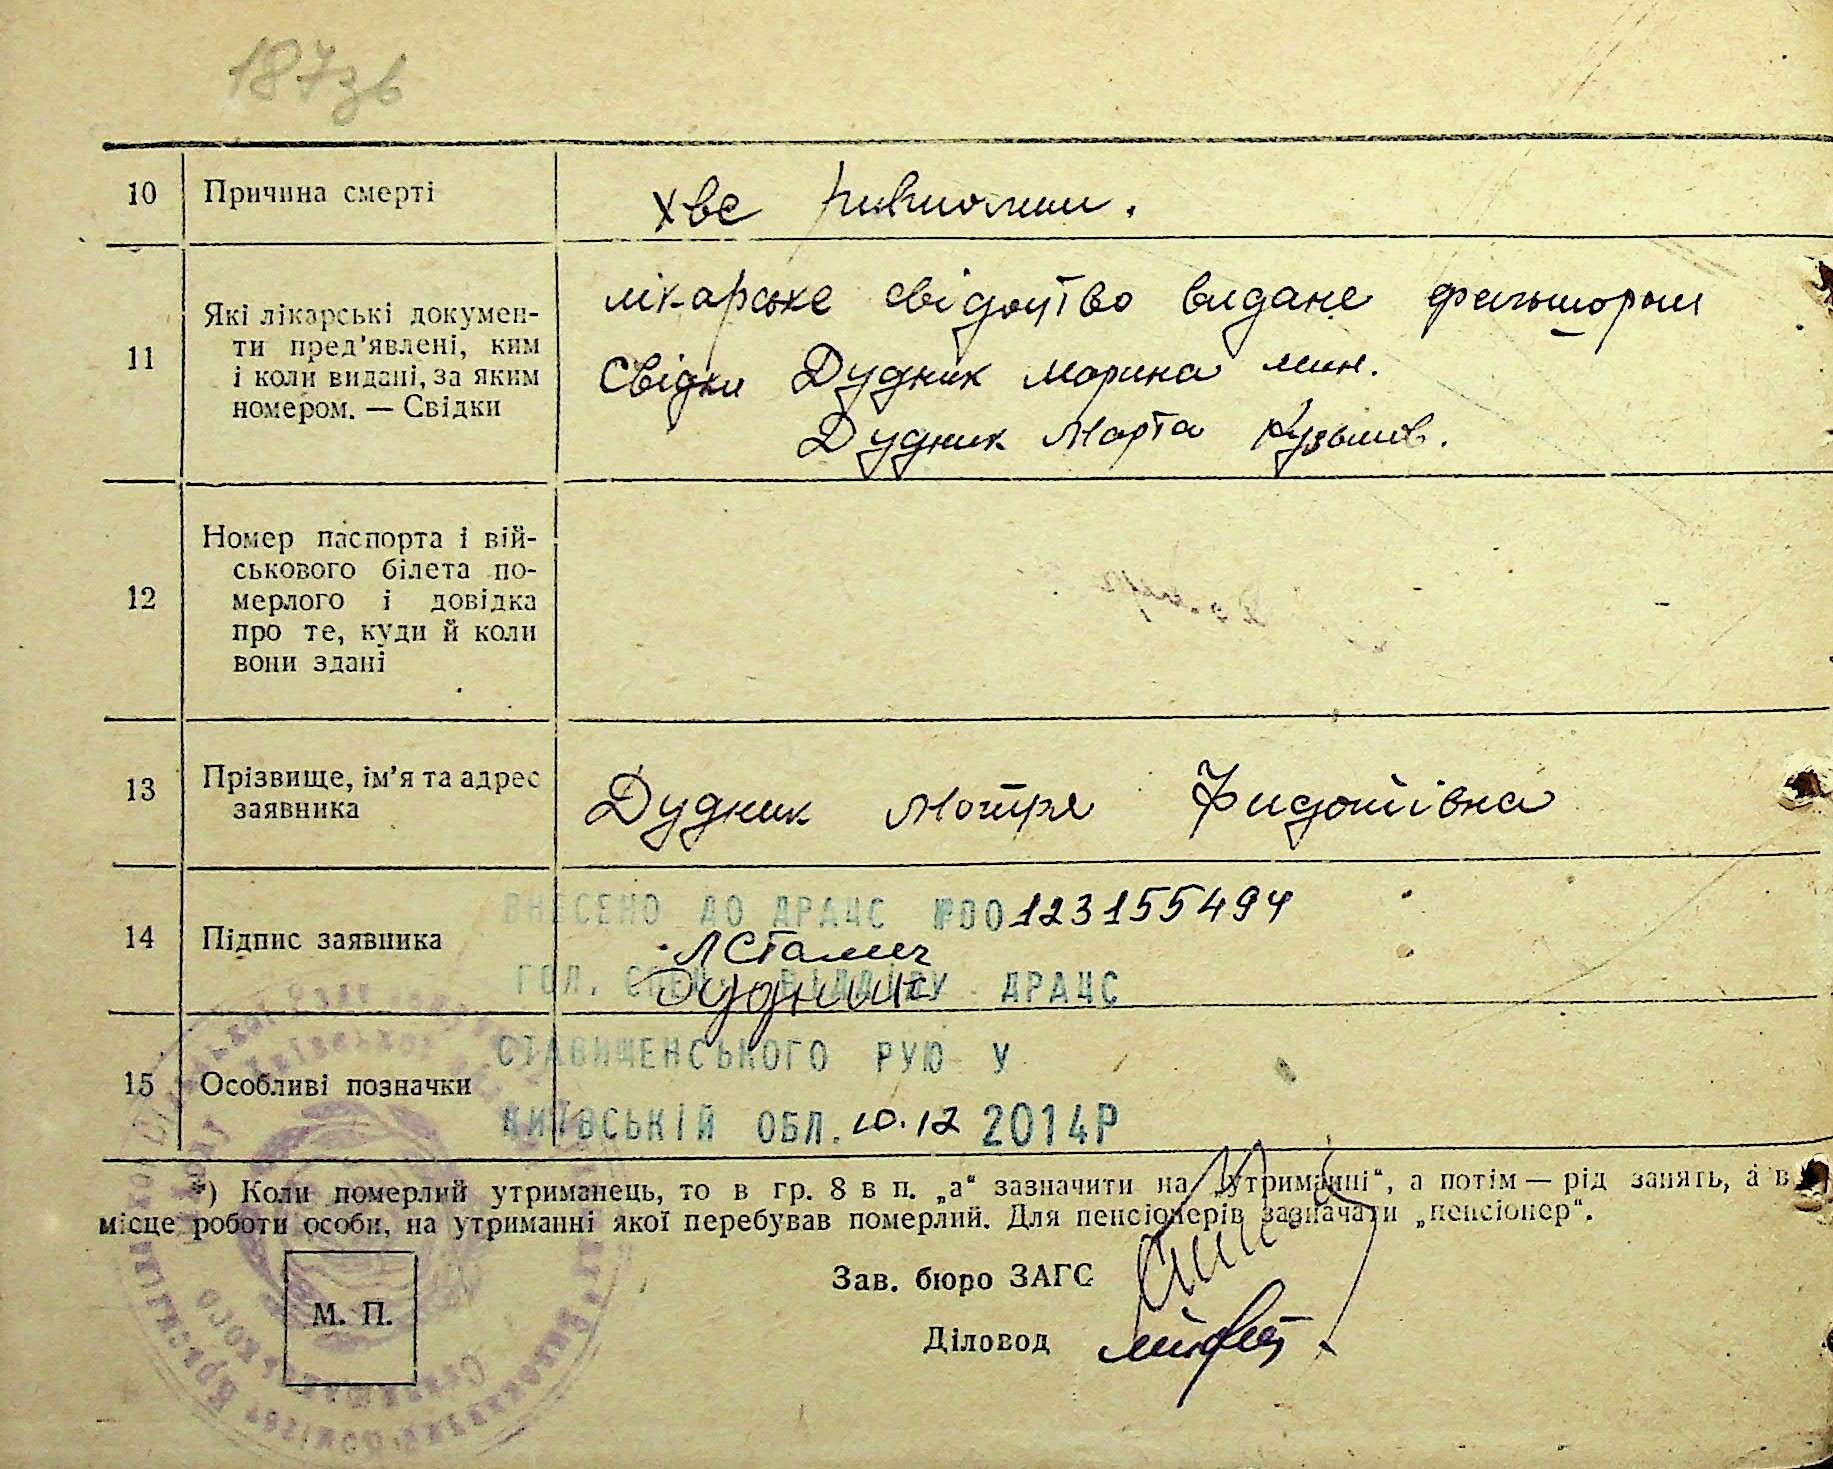 187зв
10 Причина смерті
хвс
11 Які лікарські докумен-
ти пред'явлені, ким
і коли видані, за яким
номером. — Свідки
лікарське свідоцтво видане фельшором
Свідки Дудник Морина мин.
Дудник Марта Кузьмов.
12 Номер паспорта і вій-
ськового білета по-
мерлого і довідка
про те, куди й коли
вони здані
13 Прізвище, ім'я та адрес
заявника
Дудник Мотря Фидотівна
ВНЕСЕНО ДО ДРАЦС №00123155494
14 Підпис заявника
Дудник
ГОЛ. СПЕЦ. ВІДДІЛУ ДРАЦС
СТАВИЩЕНСЬКОГО РУЮ У
15 Особливі позначки
КИЇВСЬКІЙ ОБЛ. 10.12 2014Р
*) Коли померлий утриманець, то в гр. 8 в п. „а“ зазначити на „утриманні“, а потім — рід занять, а в
місце роботи особи, на утриманні якої перебував померлий. Для пенсіонерів зазначати „пенсіонер“.
Зав. бюро ЗАГС
М. П.
Діловод